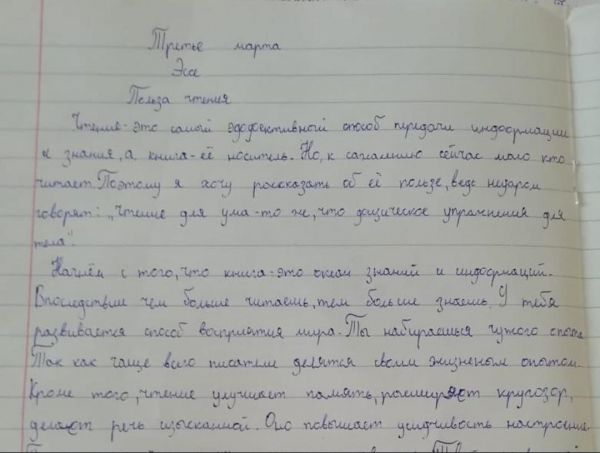 Третье марта
Эссе
Польза чтения
Чтение-это самый эффективный способ передачи информации
и знания, а книга-её носитель. Но, к сожалению сейчас мало кто
читает. Поэтому я хочу рассказать об её пользе, ведь недаром
говорят: „Чтение для ума-то же, что физическое упражнения для
тела".
Начнём с того, что книга-это океан знаний и информаций.
Впоследствие чем больше читаешь, тем больше знаешь. У тебя
развивается способ восприятия мира. Ты набираешься чужого опыта
Так как чаще всего писатели делятся своим жизненым опытом.
Кроме того, чтение улучшает память, расширяет кругозор,
делает речь изысканной. Оно повышает усидчивость настроение.